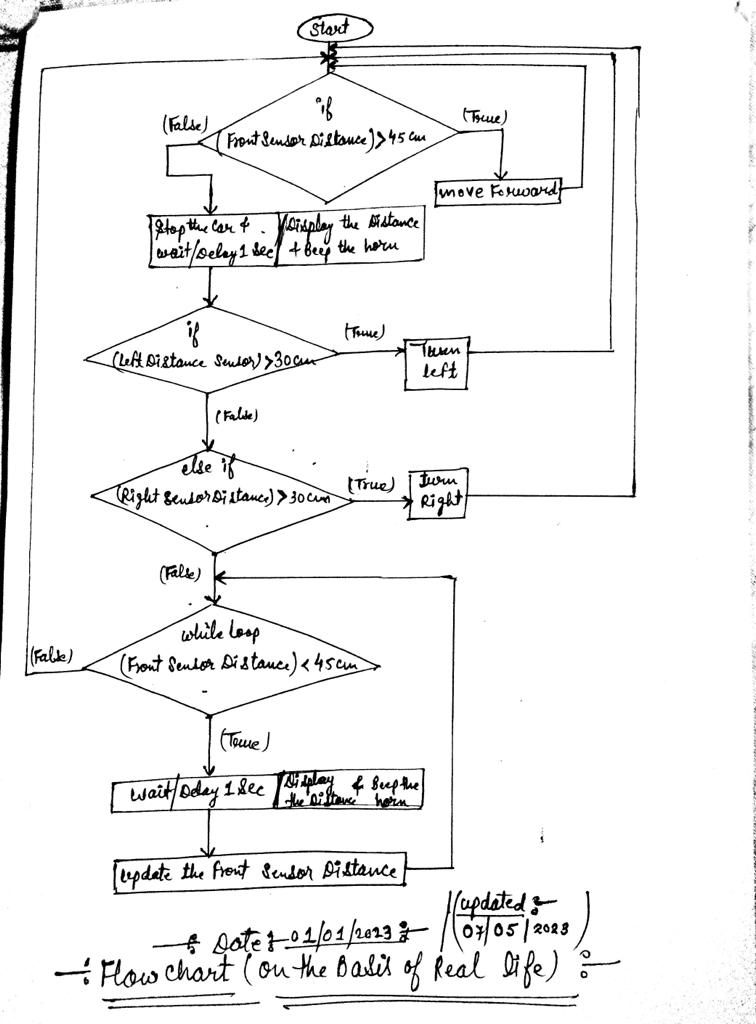 Start
if
(Front Sensor Distance) > 45 cm
(False)
(True)
move Forward
Stop the Car &
wait/Delay 1 Sec
/Display the Distance
& Beep the horn
if
(Left Distance Sensor) > 30 cm
(True)
Turn
left
(False)
else if
(Right Sensor Distance) > 30 cm
(True)
turn
Right
(False)
while loop
(Front Sensor Distance) < 45 cm
(False)
(True)
wait/Delay 1 Sec
/Display & Beep the
the Distance horn
update the front Sensor Distance
Date :- 01/01/2023 :-
(updated :-
07/05/2023)
-: Flow chart (on the Basis of Real life) :-